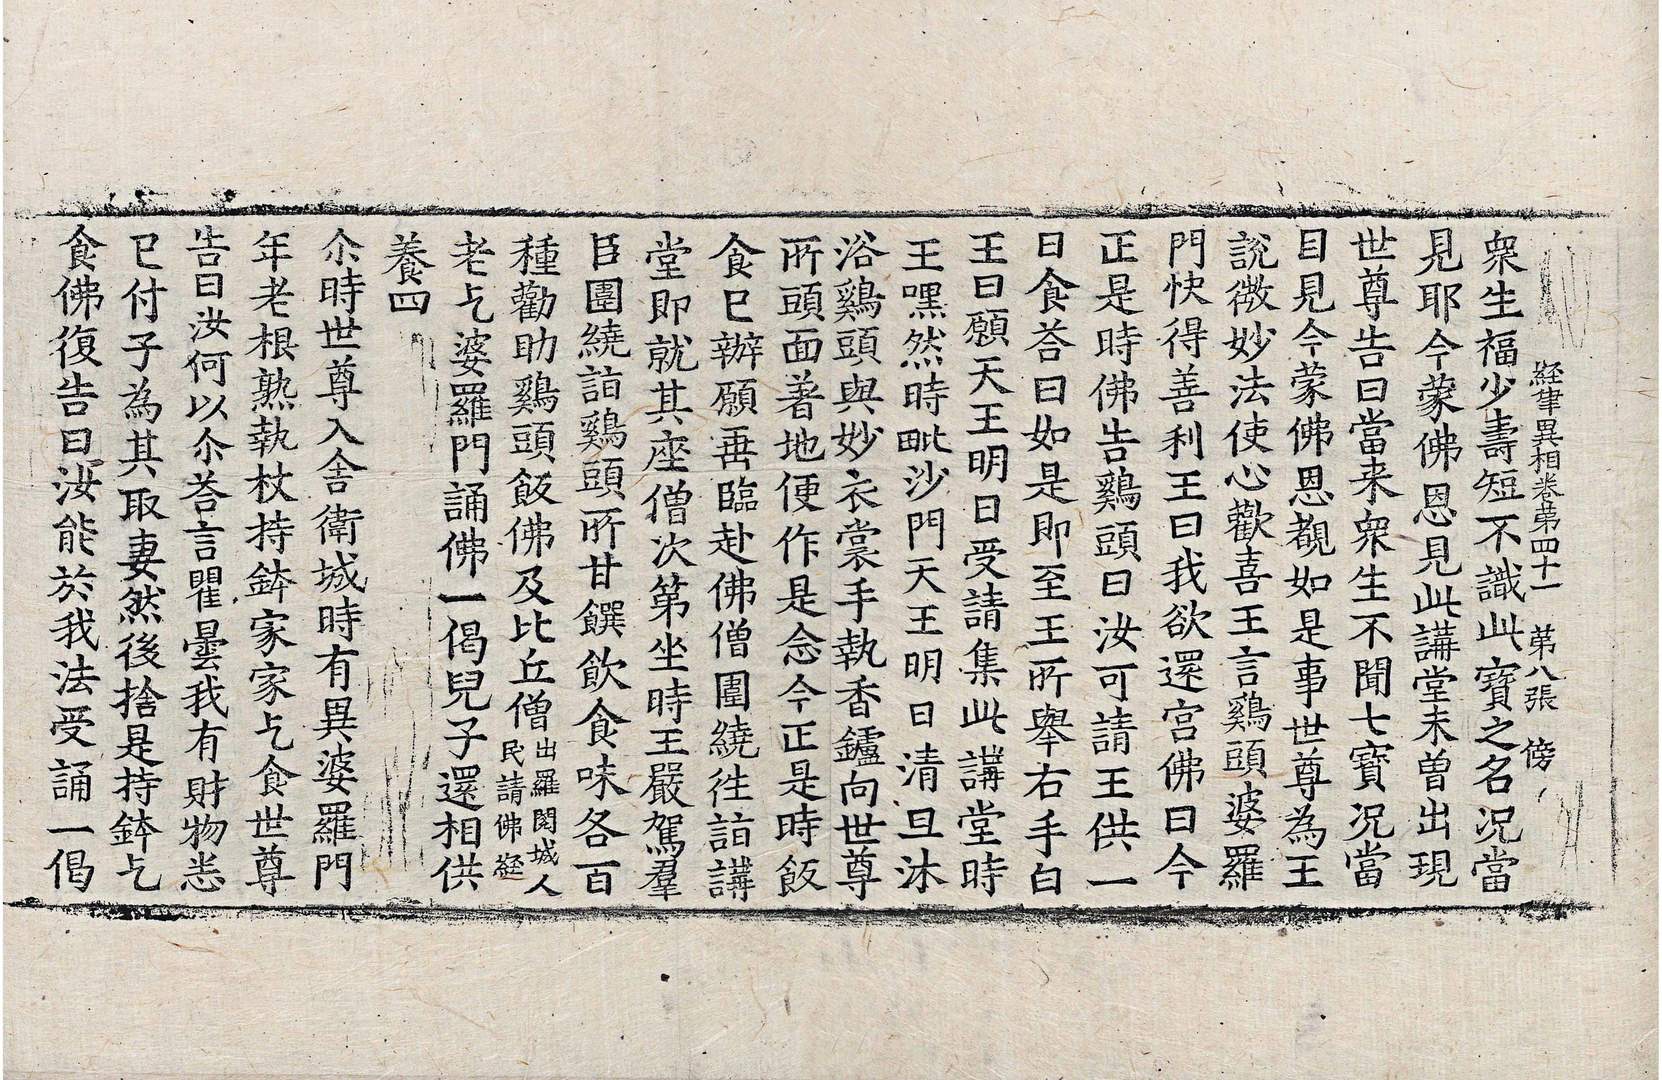 経律異相巻苐四十一 苐八張 傍
衆生福少壽短不識此寶之名況當
見耶今蒙佛恩見此講堂未曽出現
世尊告曰當来衆生不聞七寶況當
目見今蒙佛恩覩如是事世尊為王
說微妙法使心歡喜王言鷄頭婆羅
門快得善利王曰我欲還宫佛曰今
正是時佛告鷄頭曰汝可請王供一
日食荅曰如是即至王所舉右手白
王曰願天王明日受請集此講堂時
王嘿然時毗沙門天王明日清旦沐
浴鷄頭與妙衣裳手執香鑪向世尊
所頭面著地便作是念今正是時飯
食巳辦願垂臨赴佛僧圍繞徃詣講
堂即就其座僧次第坐時王嚴駕羣
臣圍繞詣鷄頭所甘饌飲食味各百
種勸助鷄頭飯佛及比丘僧出羅閱城人民請佛経
老乞婆羅門誦佛一偈兒子還相供
養四
尒時世尊入舍衛城時有異婆羅門
年老根熟執杖持鉢家家乞食世尊
告曰汝何以尒荅言瞿曇我有財物悉
巳付子為其取妻然後捨是持鉢乞
食佛復告曰汝能於我法受誦一偈